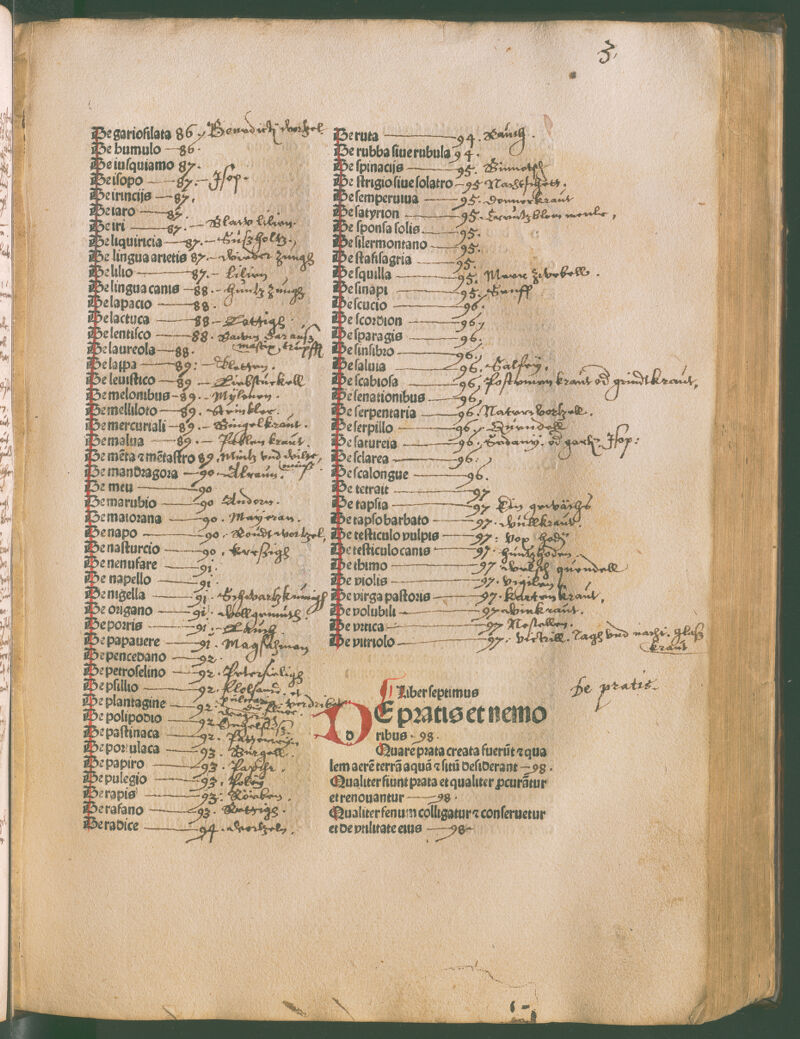 3
De gariofilata 86
De humulo 86.
De iusquiamo 87.
De isopo 87. Jsop.
De irincijs 87.
De iaro 87.
De iri 87. Blaw lilien.
De liquiricia 87. Süszholtz.
De lingua arietis 87. zungh
De lilio 87. Lilien
De lingua canis 88. Huntz zungh
De lapacio 88.
De lactuca 88. Lattigh.
De lentisco 88.
De laureola 88.
De lappa 89. Kletten.
De leuistico 89. Liebstuckell
De melonibus 89. Mylonen.
De melliloto 89.
De mercuriali 89. Bingelkraut.
De malua 89. Pappelen kraut.
De mēta ⁊ mētastro 89. Müntz vnd wilde müntz
De mandragora 90 Alraun.
De meu 90
De marubio 90 Andorn.
De maiorana 90. Mayeran.
De napo 90.
De nasturcio 90. Kressigh
De nenufare 91.
De napello 91.
De nigella 91.
De origano 91. Wollgemuth.
De porris 91. Lauch.
De papauere 91. Maghsaman
De pencedano 92.
De petroselino 92. Petersieligh
De psillio 92.
De plantagine 92.
De polipodio 92. Engelsüsz
De pastinaca 92.
De portulaca 93. Burgell.
De papiro 93.
De pulegio 93. Poley
De rapis 93. Rüeben.
De rafano 93. Rettigh.
De radice 94. Wortzeln.
De ruta 94. Rauth.
De rubba siue rubula 94.
De spinacijs 95.
De strigio siue solatro 95 Nachtschett.
De semperuiua 95. Donnerkraut
De satyrion 95.
De sponsa solis 95.
De silermontano 95.
De stafisagria 95.
De squilla 95. Meer zwebell.
De sinapi 95. Senff
De scucio 96.
De scordion 96
De sparagis 96.
De sinsibro 96.
De saluia 96. Salfey.
De scabiosa 96. Postemen kraut od grindtkraut,
De senationibus 96.
De serpentaria 96. Naterwortzell.
De serpillo 96. Quendell
De satureia 96.
De sclarea 96.
De scalongue 96.
De tetrait 97
De tapsia 97 Ein gewächs
De tapso barbato 97. Wullkraut.
De testiculo vulpis 97.
De testiculo canis 97. Huntzhoden.
De thimo 97 Welsch quendell
De violis 97. Vigilen
De virga pastoris 97. Karten kraut,
De volubili 97 Winkraut.
De vrtica 97 Nessellen.
De vitriolo 97. Vitrill. Tagh vnd nacht. Glasz kraut
De pratis.
Liber septimus
DE pratis et nemo
ribus 98.
Quare prata creata fuerūt ⁊ qua
lem aerē terrā aquā ⁊ sitū desiderant 98.
Qualiter fiunt prata et qualiter ꝓcurātur
et renouantur 98.
Qualiter fenum colligatur ⁊ conseruetur
et de vtilitate eius 98